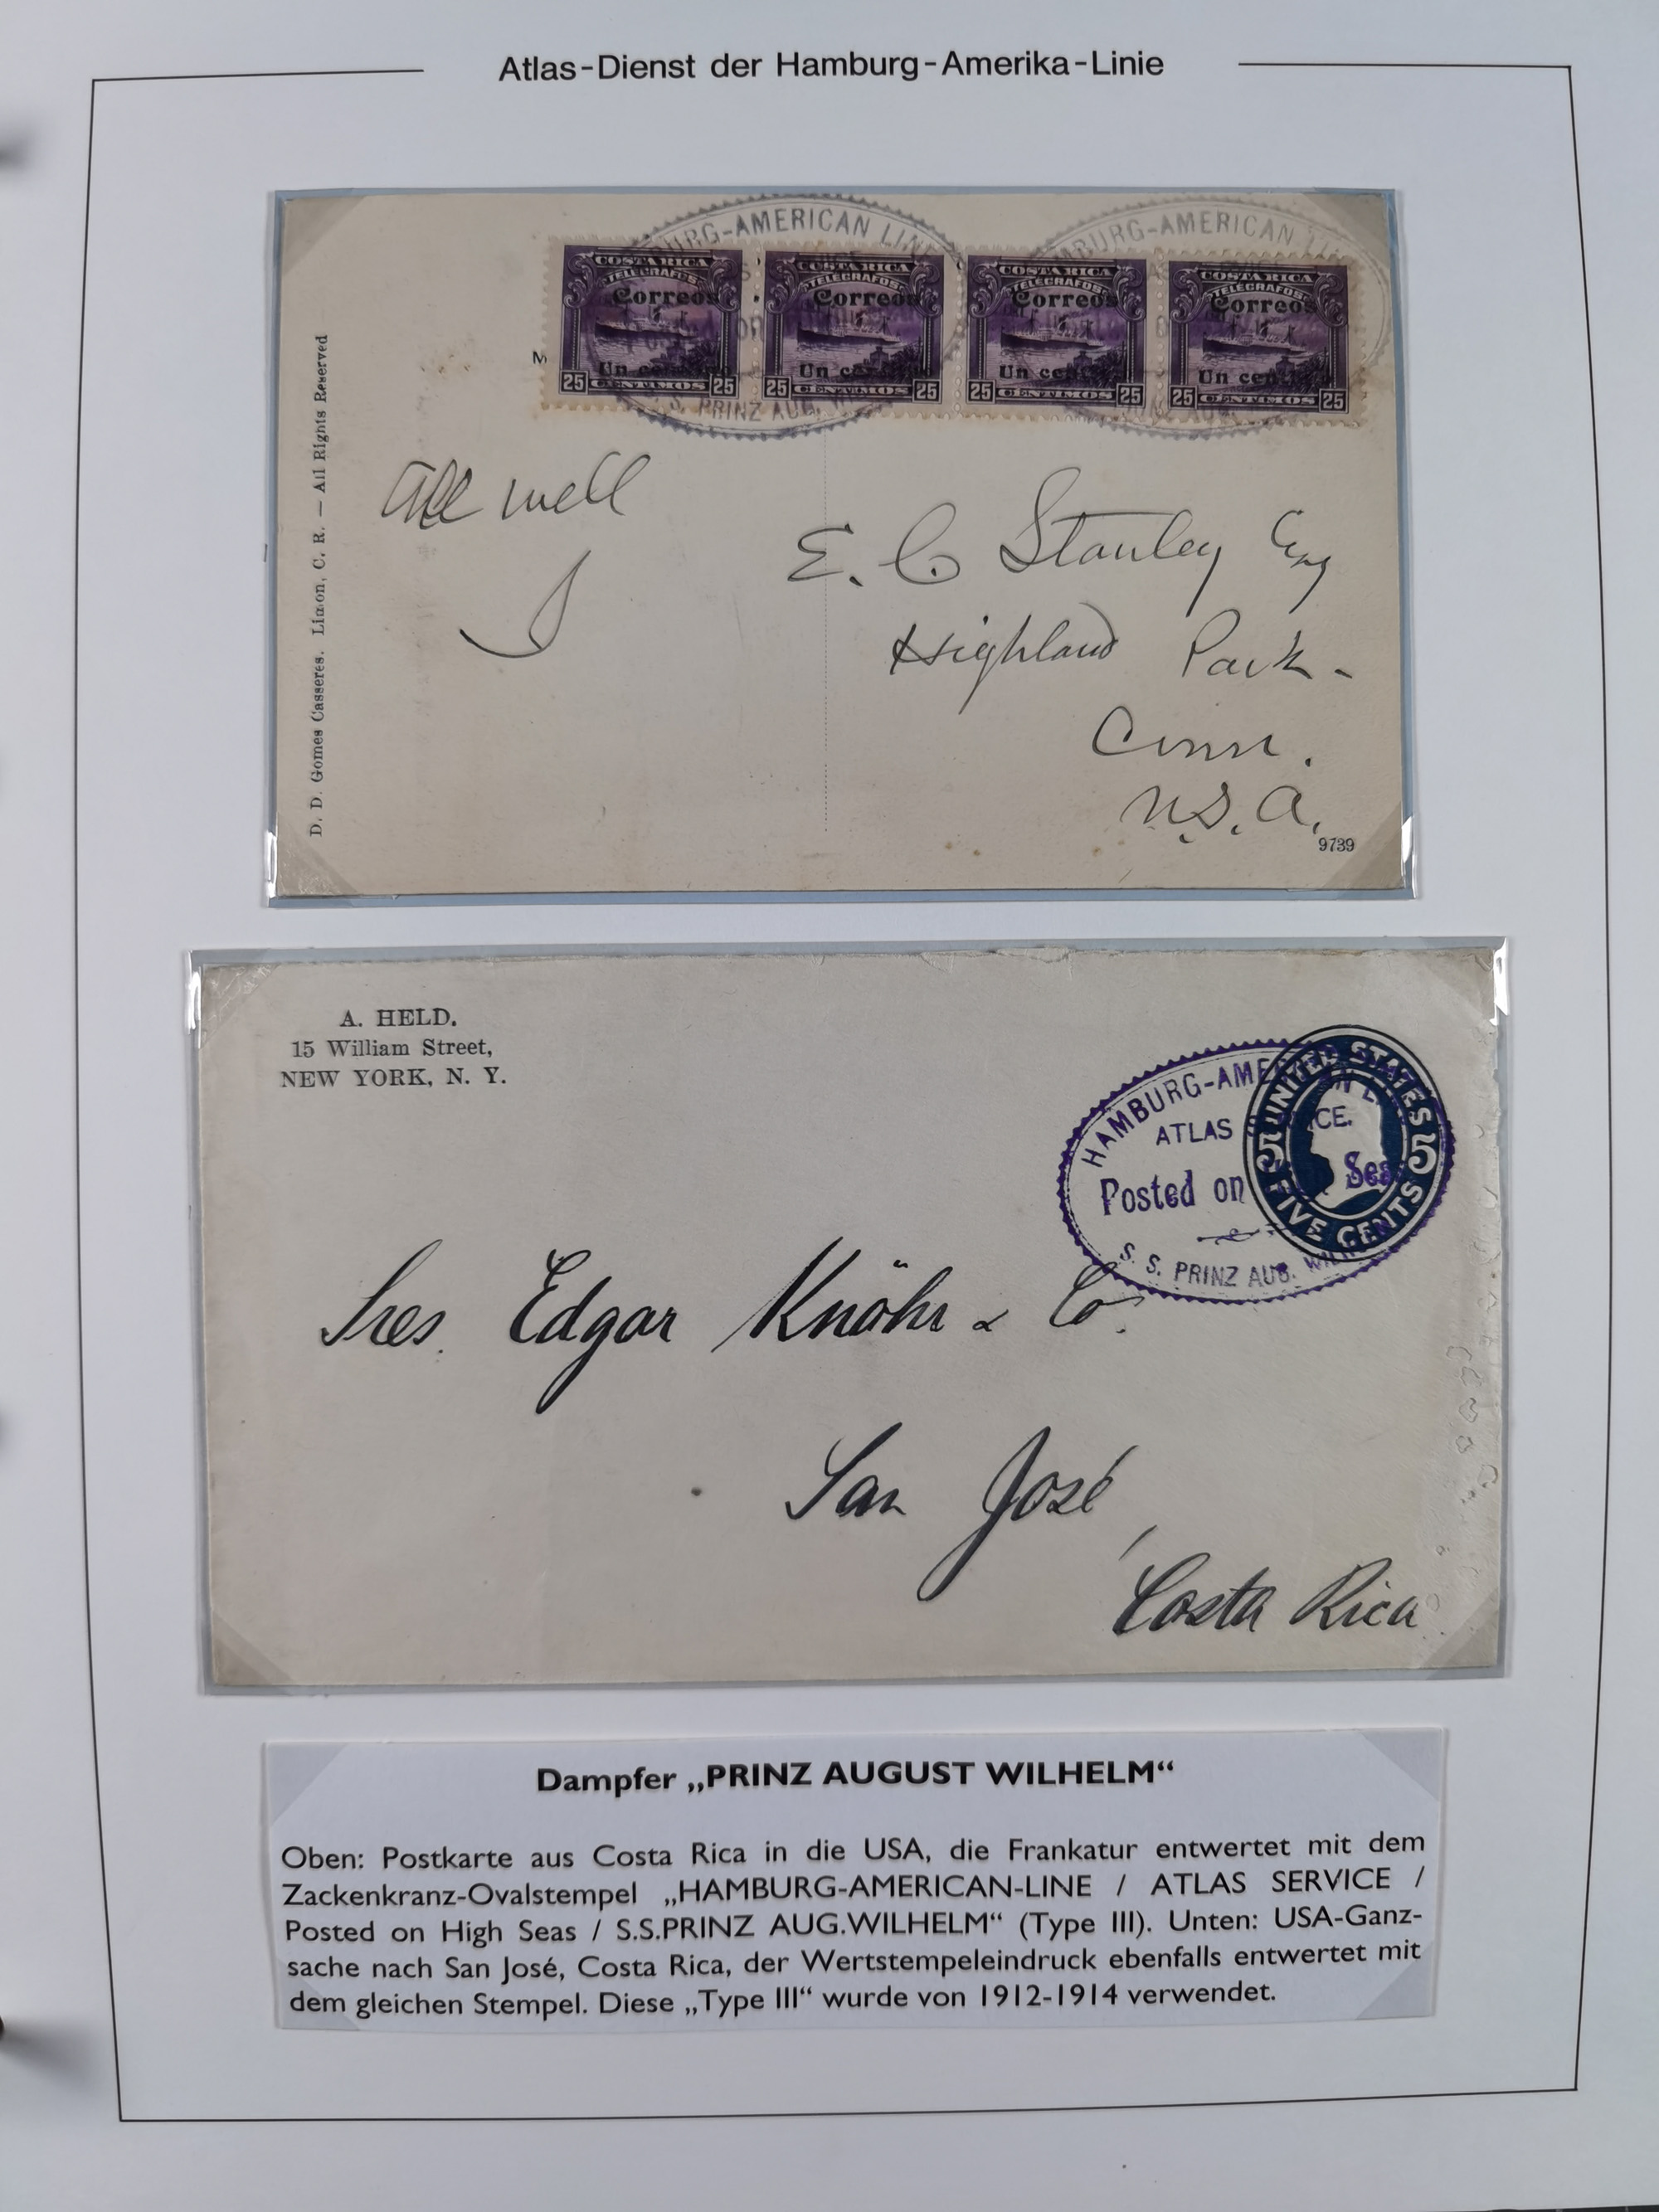 Atlas-Dienst der Hamburg-Amerika-Linie
BURG-AMERICAN LINE
BURG-AMERICAN LI
COSTA RICA COSTA RICA COSTA RICA COSTA RICA
TELEGRAFOS TELEGRAFOS TELEGRAFOS TELEGRAFOS
Correos Correos Correos Correos
M
Un centimo Un centimo Un centimo Un centimo
25 25 25 25 25 25 25 25
CENTIMOS CENTIMOS CENTIMOS CENTIMOS
S. PRINZ AUG. W
D. D. Gomes Casseres. Limon, C. R. — All Rights Reserved
All well
E. C. Stanley Esq
Highland Park -
Conn.
U.S.A.
9739
A. HELD.
15 William Street,
NEW YORK, N. Y.
HAMBURG-AMERICAN L
ATLAS CE.
Posted on Seas
S. S. PRINZ AUG. WILH
UNITED STATES
5 5
FIVE CENTS
Sres. Edgar Knöhr & Co.
San José,
Costa Rica
Dampfer „PRINZ AUGUST WILHELM“
Oben: Postkarte aus Costa Rica in die USA, die Frankatur entwertet mit dem
Zackenkranz-Ovalstempel „HAMBURG-AMERICAN-LINE / ATLAS SERVICE /
Posted on High Seas / S.S.PRINZ AUG.WILHELM“ (Type III). Unten: USA-Ganz-
sache nach San José, Costa Rica, der Wertstempeleindruck ebenfalls entwertet mit
dem gleichen Stempel. Diese „Type III“ wurde von 1912-1914 verwendet.